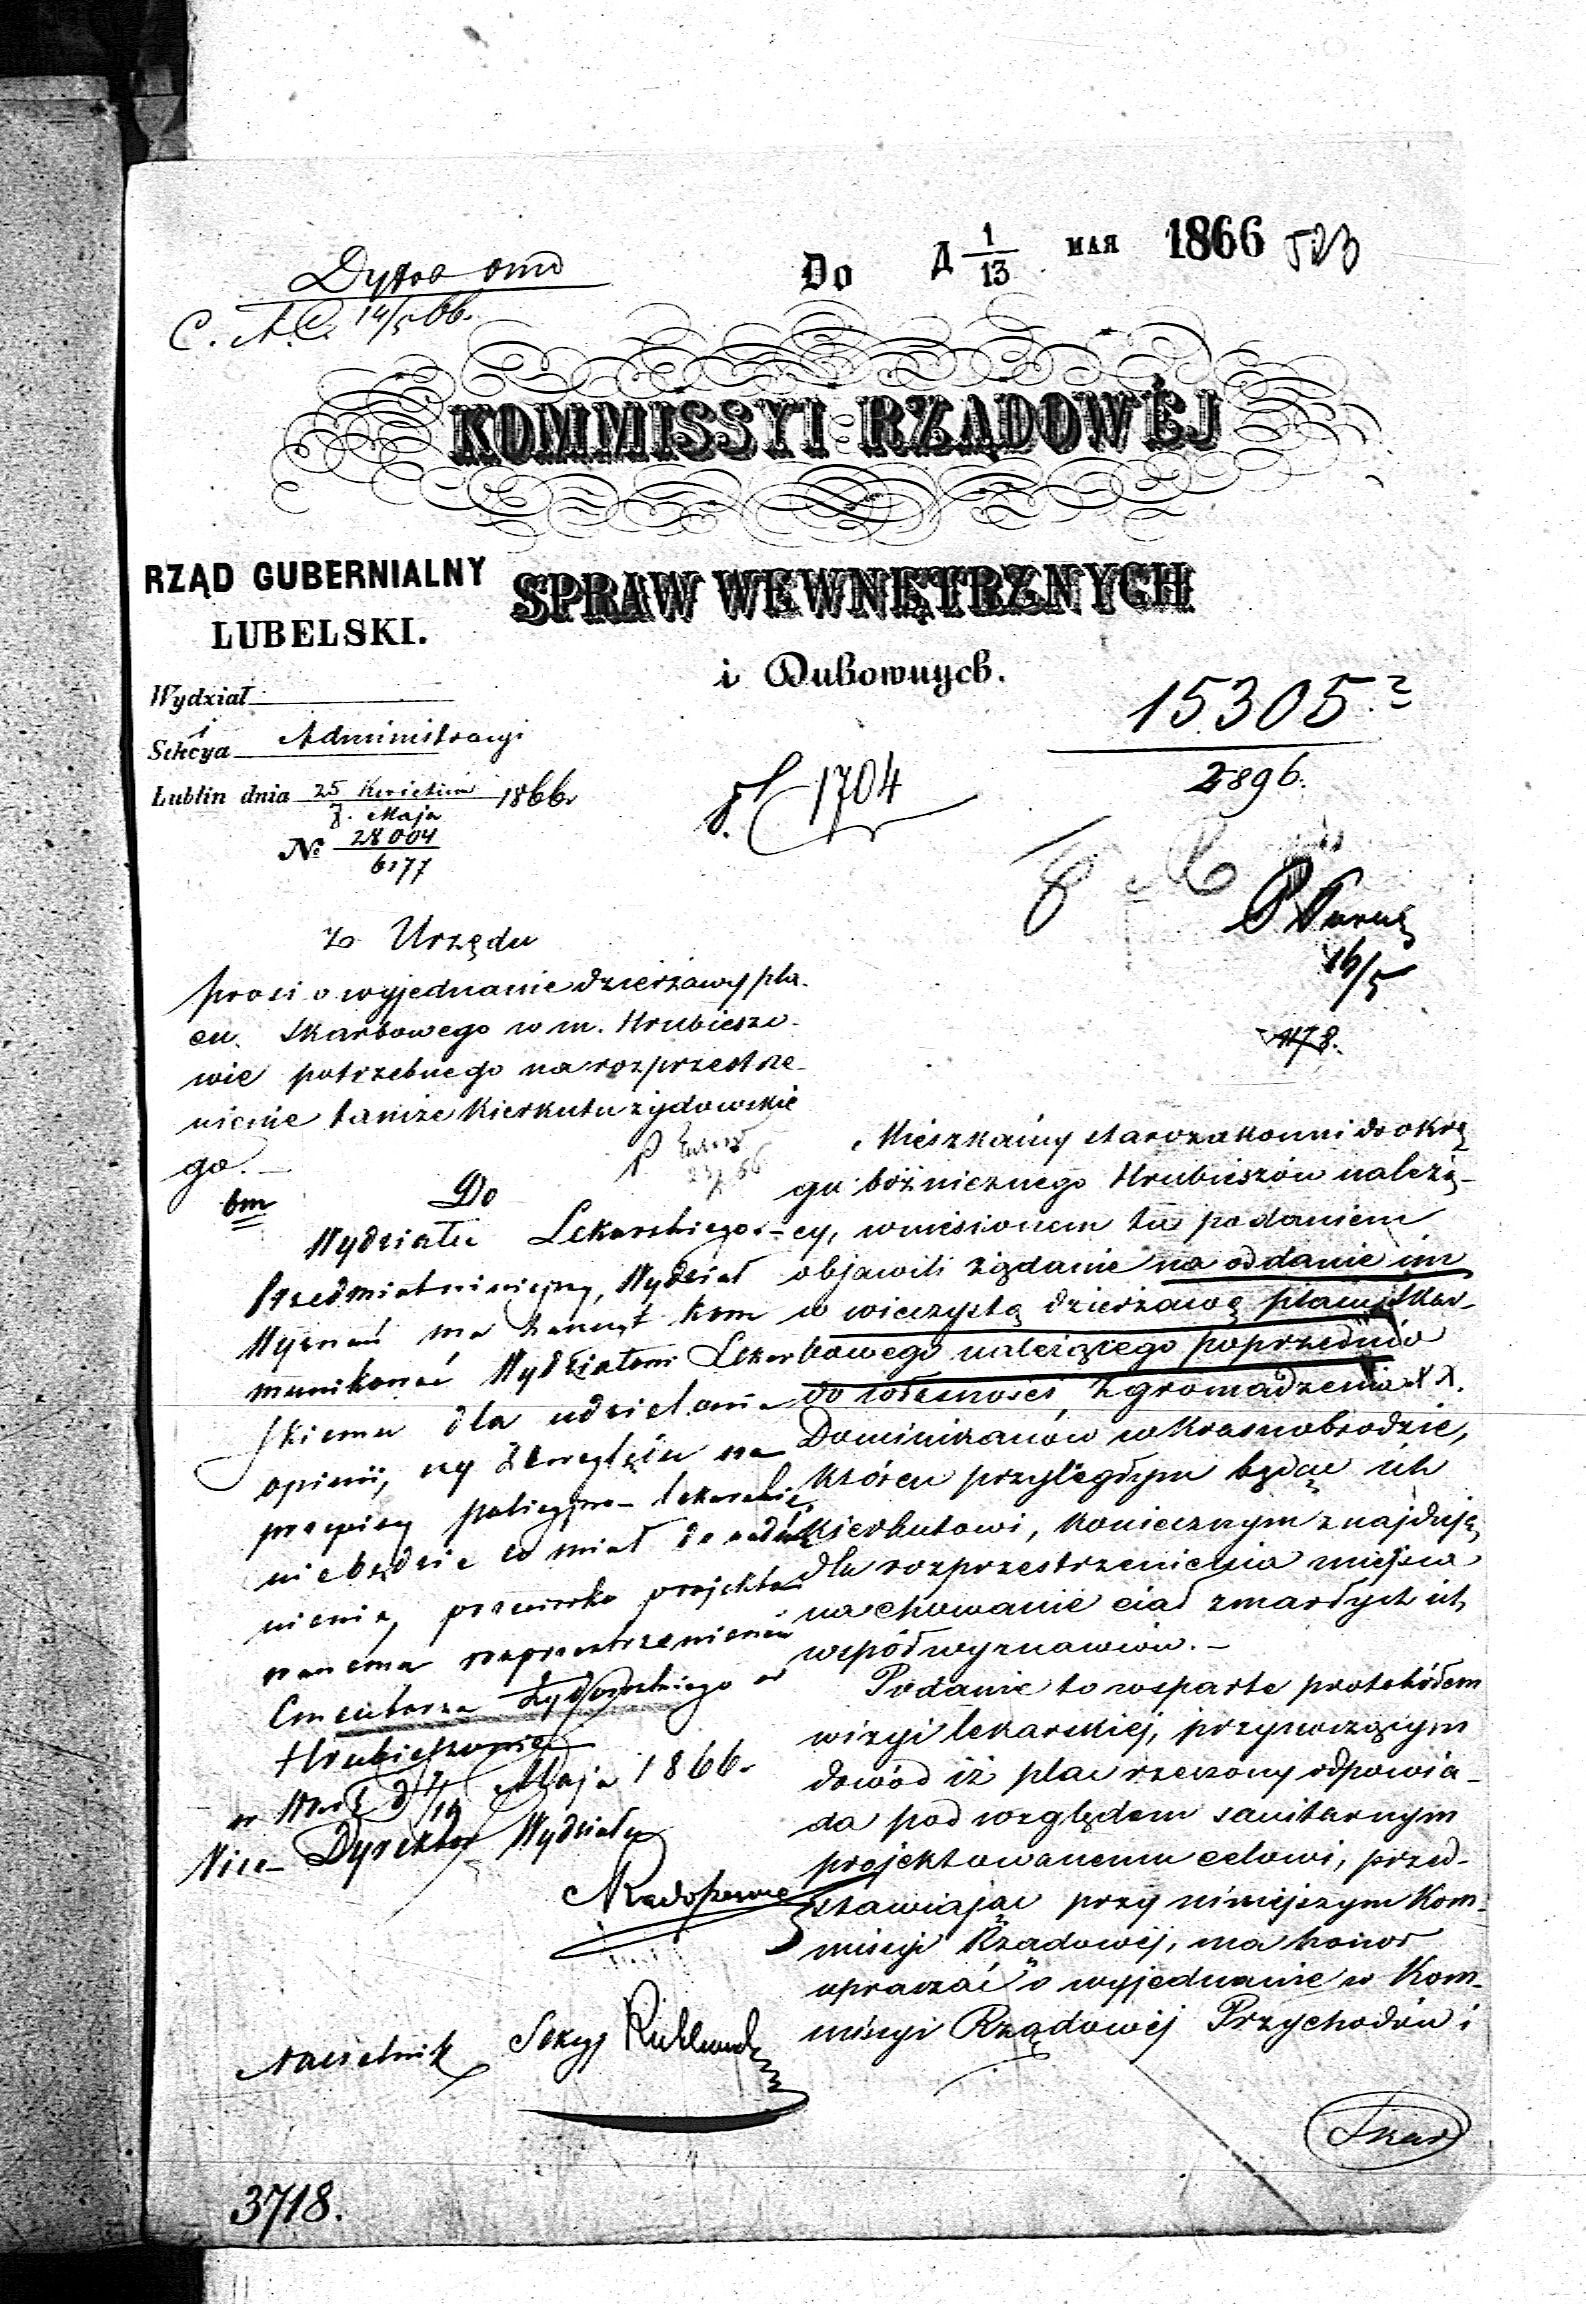 Do
Д 1/13 МАЯ 1866
523
C. A. C. 14/5 66.
KOMMISSYI RZĄDOWÉJ
SPRAW WEWNĘTRZNYCH
i Duchownych.
RZĄD GUBERNIALNY
LUBELSKI.
Wydział
Sekcya Administracyi
Lublin dnia 25 Kwietnia 1866
7. Maja
№ 28004
6177
15305
2896.
1704
16/5
1178.
Z Urzędu
prosi o wyjednanie dzierżawy pla-
cu Skarbowego w m. Hrubieszo-
wie potrzebnego na rozprzestrze-
nienie tamże Kierkutu żydowskie
go.
Do
Wydziału Lekarskiego
Przedmiot niniejszy, Wydział
Wyznań ma zaszczyt kom
munikować Wydziałowi Lekar
skiemu dla udzielenia
opinii, czy ze względu na
przepisy policyjno-lekarskie
niebędzie co miał do nad
mienienia, przeciwko projekto
wanemu rozprzestrzenieniu
Cmentarza Żydowskiego w
Hrubieszowie
w Maja 1866
Vice-Dyrektor Wydziału
Naczelnik Sekcyi
3718.
Mieszkańcy starozakonni do okrę
gu bóżnicznego Hrubieszów należą-
cy, wniesionem tu podaniem
objawili żądanie na oddanie im
w wieczystą dzierżawę placu Skar-
bowego należącego poprzednio
do własności Zgromadzenia XX.
Dominikanów w Krasnobrodzie,
który przyległym będąc ich
Kierkutowi, koniecznym znajdują
dla rozprzestrzenienia miejsca
na chowanie ciał zmarłych ich
współwyznawców.-
Podanie to wsparte protokółem
wizyi lekarskiej, przynoszącym
dowód iż plac rzeczony odpowia-
da pod względem sanitarnym
projektowanemu celowi, przed-
stawiając przy niniejszym Kom-
missyi Rządowéj, ma honor
upraszać o wyjednanie w Kom-
missyi Rządowéj Przychodów i
Skar